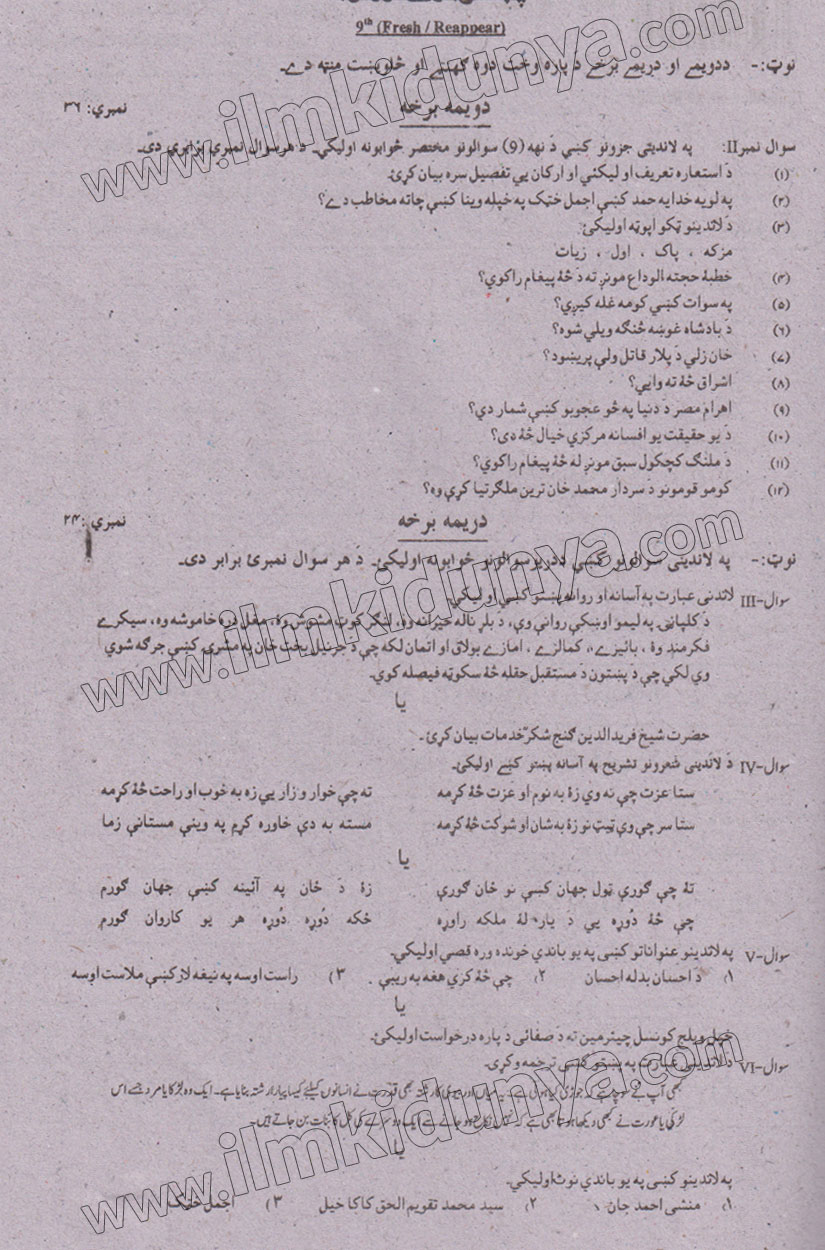 9th (Fresh / Reappear)
نوټ:- ددویمے او دریمے برخے د پاره وخت دوه گھنٹے او څلوېښت منټه دے۔
دویمه برخه
نمبرې: ۳۶
سوال نمبرII: په لاندینی جزونو کښې د نهه (9) سوالونو مختصر ځوابونه اولیکئ۔ د هر سوال نمبرې برابرې دی۔
(۱) د استعاره تعریف او لیکئی او ارکان یې تفصیل سره بیان کړئ۔
(۲) په لویه خدایه حمد کښې اجمل خټک په خپله وینا کښې چاته مخاطب دے؟
(۳) د لاندینو ټکو اپوټه اولیکئ
مزکه ، پاک ، اول ، زیات
(۴) خطبۂ حجته الوداع مونږ ته د څۀ پیغام راکوي؟
(۵) په سوات کښې کومه غله کیږي؟
(۶) د بادشاه غوښه څنگه ویلې شوه؟
(۷) خان زلي د پلار قاتل ولې پریښود؟
(۸) اشراق څۀ ته وایي؟
(۹) اهرام مصر د دنیا په څو عجوبو کښې شمار دي؟
(۱۰) د یو حقیقت یو افسانه مرکزي خیال څۀ دی؟
(۱۱) د ملنگ کچکول سبق مونږ له څۀ پیغام راکوي؟
(۱۲) کومو قومونو د سردار محمد خان ترین ملگرتیا کړې وه؟
دریمه برخه
نمبرې: ۲۴
نوټ:- په لاندینی سوالونو کښې ددریو سوالونو ځوابونه اولیکئ۔ د هر سوال نمبرئ برابر دی۔
سوال-III لاندنی عبارت په آسانه او روانه پښتو کښې اولیکي۔
د کلپانۍ په لیمو اوښکې روانې وې، د بلړ ناله حیرانه وه، لنگر کوټ مشوش وۀ، مغل دره خاموشه وه، سیکرے
فکرمند وۀ ، بائیزے، کمالزے ، امازے بولاق او اتمان لکه چې د جرنیل بخت خان په مشرۍ کښې جرگه شوي
وي لکې چې د پښتون د مستقبل حقله څۀ سکوټه فیصله کوي۔
یا
حضرت شیخ فریدالدین گنج شکرؒ خدمات بیان کړئ ۔
سوال-IV د لاندینی شعرونو تشریح په آسانه پښتو کښے اولیکئ۔
ستا عزت چې نه وي زۀ به نوم او عزت څۀ کړمه ته چې خوار و زار یې زه به خوب او راحت څۀ کړمه
ستا سر چې وي ټیټ نو زۀ به شان او شوکت څۀ کړمه مسته به دې خاوره کړم په وینې مستانې زما
یا
تۀ چې گورې ټول جهان کښې نو ځان گورې زۀ د ځان په آئینه کښې جهان گورم
چې څۀ دُوړه یې د یار لۀ ملکه راوړه ځکه دُوړه دُوړه هر یو کاروان گورم
سوال-V په لاندینو عنواناتو کښی په یو باندې خونده وره قصې اولیکي۔
۱) د احسان بدله احسان ۲) چې څۀ کرې هغه به ریبې ۔ ۳) راست اوسه په نیغه لار کښې ملاست اوسه
یا
خپل ویلج کونسل چیئرمین ته د صفائی د پاره درخواست اولیکئ۔
سوال-VI د لاندینو عبارت په پښتو کښې ترجمه وکړی۔
کبھی آپ نے سوچا ہے کہ جوڑی کیا ہوتی ہے۔ یہ میاں اور بیوی کا رشتہ بھی قدرت نے انسانوں کیلئے کیسا پیارا رشتہ بنایا ہے۔ ایک وہ لڑکا یا مرد جسے اس
لڑکی یا عورت نے کبھی دیکھا ہوتا بھی ہے کہ نہیں نکاح ہو جانے سے ایک دوسرے کی کل کائنات بن جاتے ہیں۔
یا
په لاندینو کښی په یو باندې نوٹ اولیکي۔
۱) منشی احمد جان ۲) سید محمد تقویم الحق کاکا خیل ۳) اجمل خټک
www.ilmkidunya.com
www.ilmkidunya.com
www.ilmkidunya.com